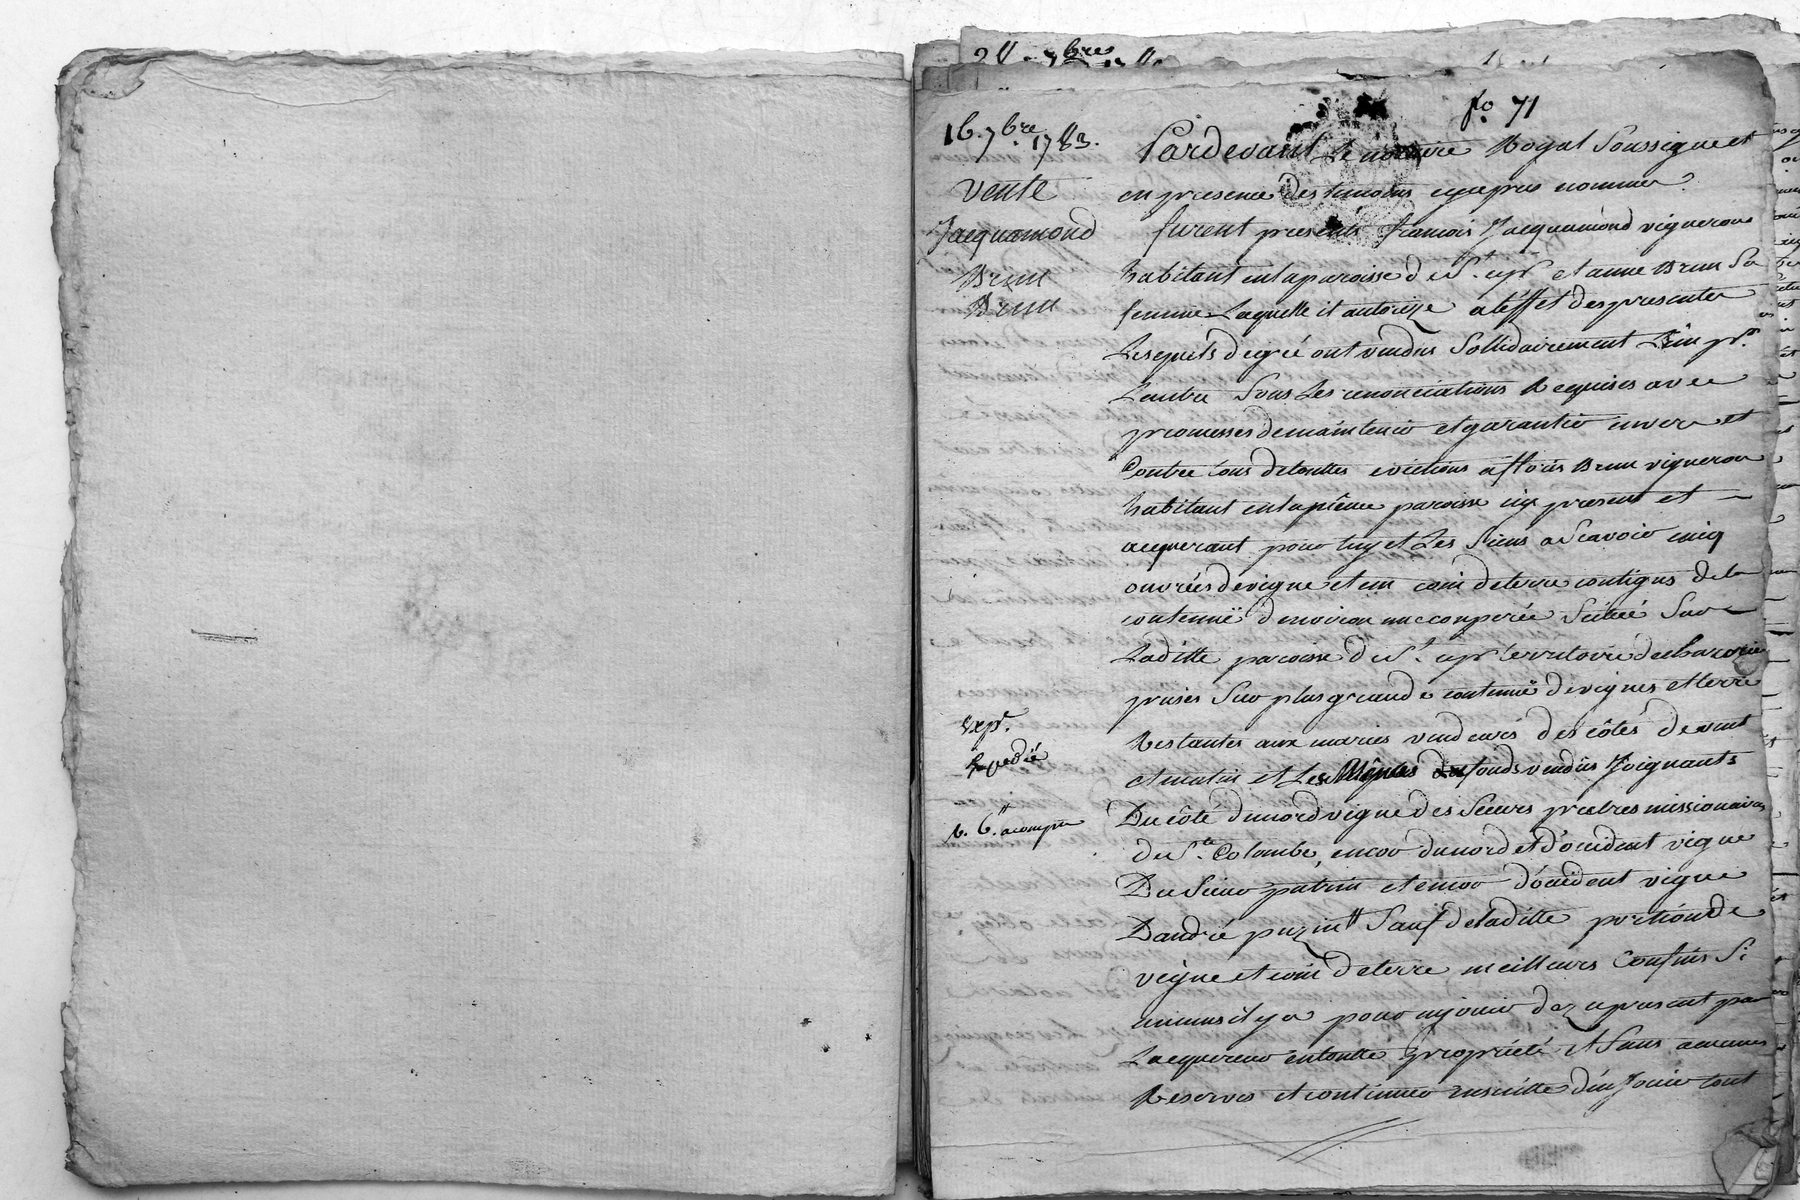 fo. 71
16. 7bre. 1783.
vente
Jacquemond
Brun
Brun
Expe.
Expedié
acompte
Pardevant Le notaire Royal Soussigné et
en presence des temoins cy apres nommés
furent presents francois Jacquemond vigneron
habitant en la paroisse de St. cyr et anne Brun Sa
femme Laquelle il autorize a l'effet des presentes
Lesquels de gré ont vendus Sollidairement L'un pr.
Lautre Sous Les renonciations Requises avec
promesses de maintenir et garantir envers et
Contre tous de touttes evictions a Brun vigneron
habitant en la même paroisse icy present et
acquerant pour luy et Les Siens a Scavoir cinq
ouvrées de vigne et un coin de terre contigus de la
contenuë d'environ une couperée Scituée Sur
Laditte paroisse de St. cyr territoire de
prises Sur plus grande contenuë de vignes et terre
Restantes aux mariés vendeurs des côtés de vent
et matin et Les Mêmes fonds vendus Joignants
Du côté du nord vigne des Sieurs prêtres missionaires
de Ste. Colombe, encor du nord et d'occident vigne
Du Sieur patrin et encor d'occident vigne
D'andré puzin Sauf de laditte portion de
vigne et coin de terre meilleurs Confins Si
aucuns il y a pour en jouir dez a present par
Lacquereur en toutte proprieté et Sans aucunes
Reserves et continuer ensuitte d'en Jouir tout